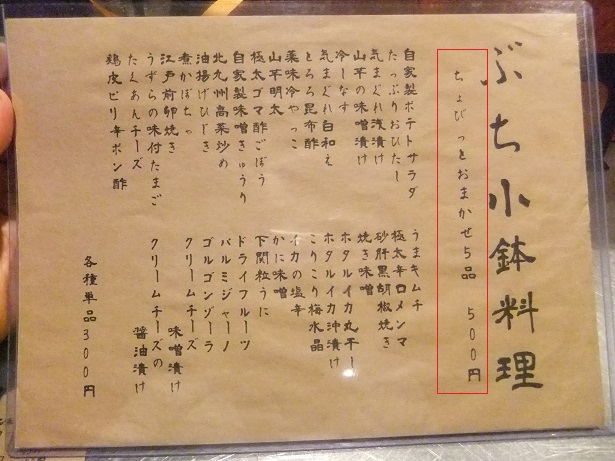 ぷち小鉢料理
ちょびっとおまかせ5品 500円
自家製ポテトサラダ
たっぷりおひたし
気まぐれ浅漬け
山芋の味噌漬け
冷しなす
気まぐれ白和え
とろろ昆布酢
薬味冷やっこ
山芋明太
極太ゴマ酢ごぼう
自家製味噌きゅうり
北九州高菜炒め
油揚げひじき
煮かぼちゃ
江戸前卵焼き
うずらの味付たまご
たくあんチーズ
鶏皮ピリ辛ポン酢
うまキムチ
極太辛口メンマ
砂肝黒胡椒焼き
焼き味噌
ホタルイカ丸干し
ホタルイカ沖漬け
こりこり梅水晶
イカの塩辛
かに味噌
下関粒うに
ドライフルーツ
パルミジャーノ
ゴルゴンゾーラ
クリームチーズ
味噌漬け
クリームチーズの
醤油漬け
各種単品300円